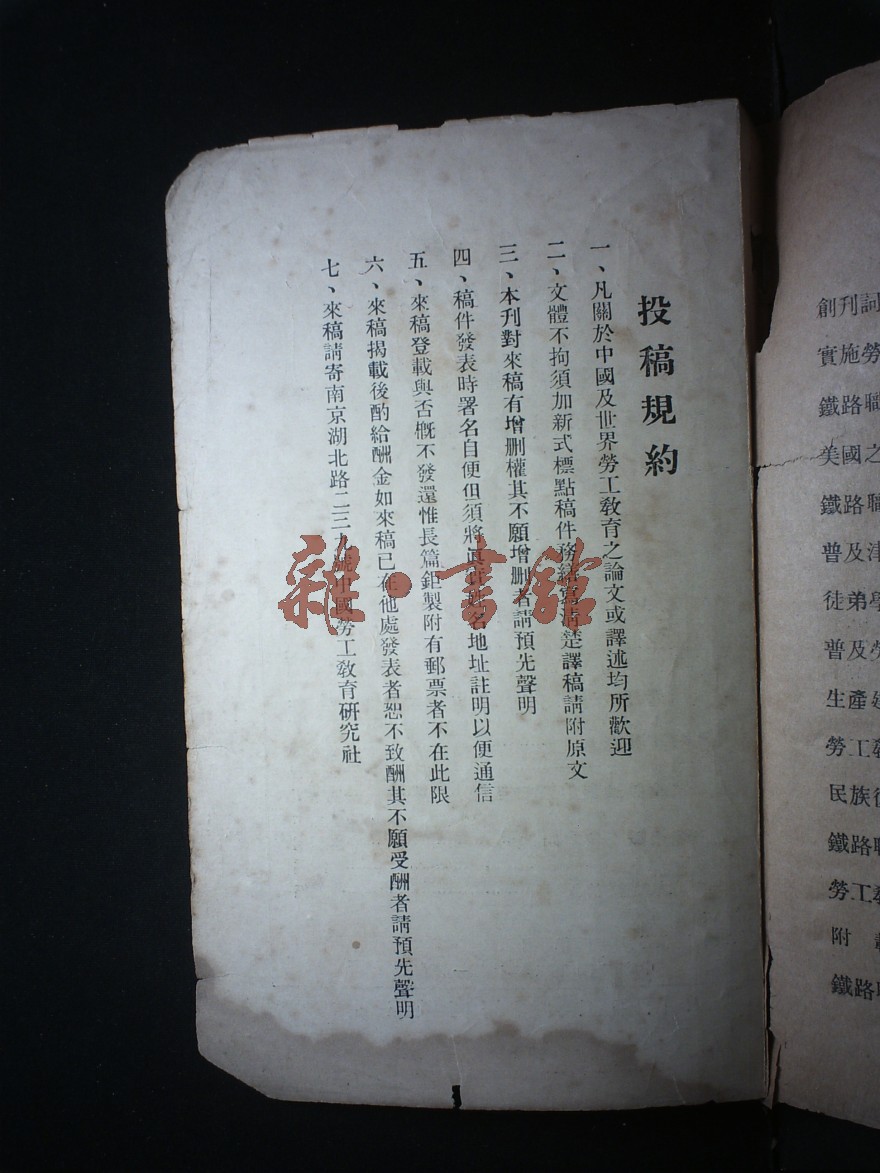 投稿規約
一、凡關於中國及世界勞工敎育之論文或譯述均所歡迎
二、文體不拘須加新式標點稿件務繕寫淸楚譯稿請附原文
三、本刊對來稿有增删權其不願增删者請預先聲明
四、稿件發表時署名自便但須將眞實姓名地址註明以便通信
五、來稿登載與否槪不發還惟長篇鉅製附有郵票者不在此限
六、來稿揭載後酌給酬金如來稿已在他處發表者恕不致酬其不願受酬者請預先聲明
七、來稿請寄南京湖北路二三九號中國勞工敎育研究社
雜·書館
創刊詞
實施勞
鐵路職
美國之
鐵路職
普及津
徒弟學
普及勞
生產建
勞工敎
民族復
鐵路職
勞工敎
附
鐵路職